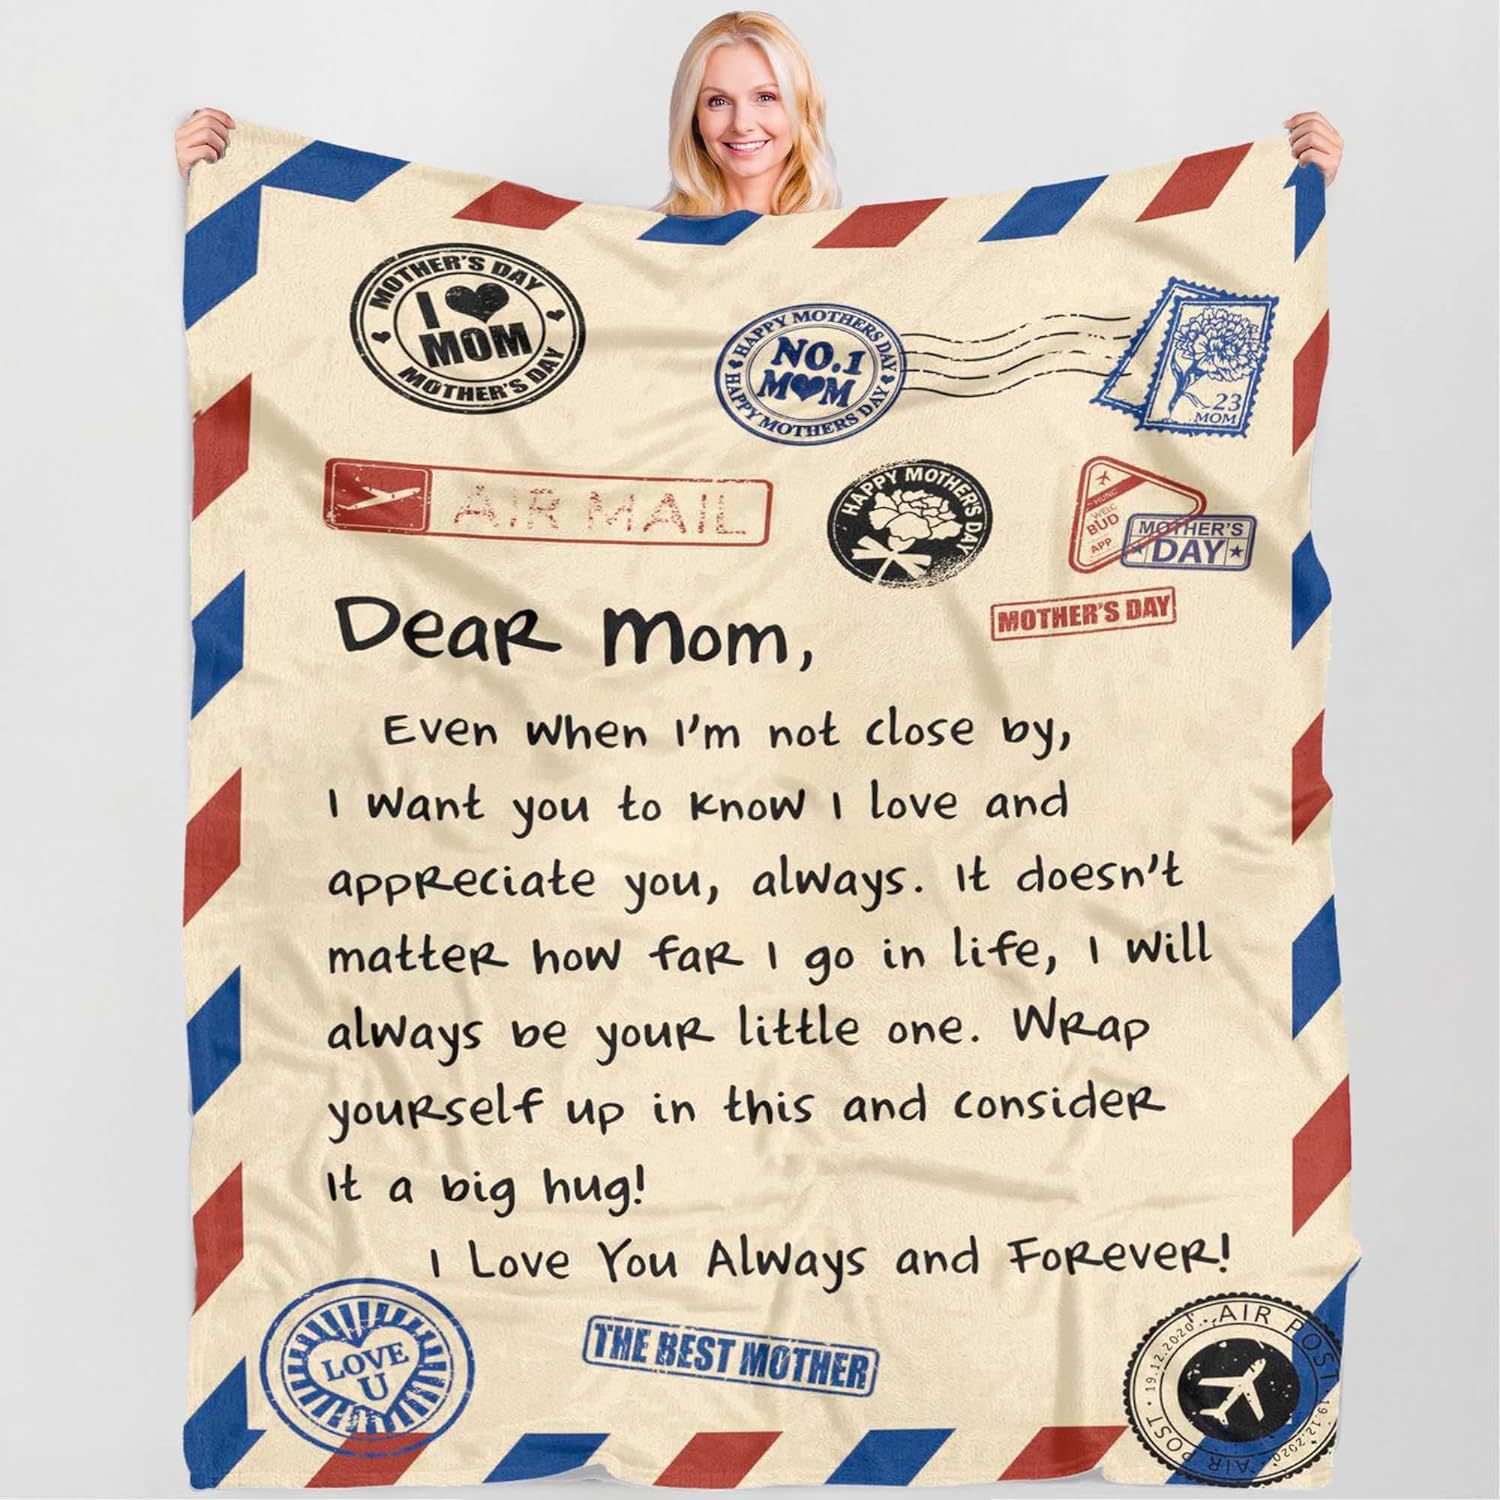 MOTHER'S DAY
I ♥
MOM
MOTHER'S DAY
HAPPY MOTHERS DAY
NO.1
M♥M
HAPPY MOTHERS DAY
23
MOM
AIR MAIL
HAPPY MOTHER'S DAY
HUNG
WEIC
BUD
APP
MOTHER'S
DAY
MOTHER'S DAY
Dear Mom,
Even when I'm not close by,
I want you to know I love and
appreciate you, always. It doesn't
matter how far I go in life, I will
always be your little one. Wrap
yourself up in this and consider
it a big hug!
I Love You Always and Forever!
LOVE
U
THE BEST MOTHER
AIR POST
19.12.2020
AIR POST
19.12.2020